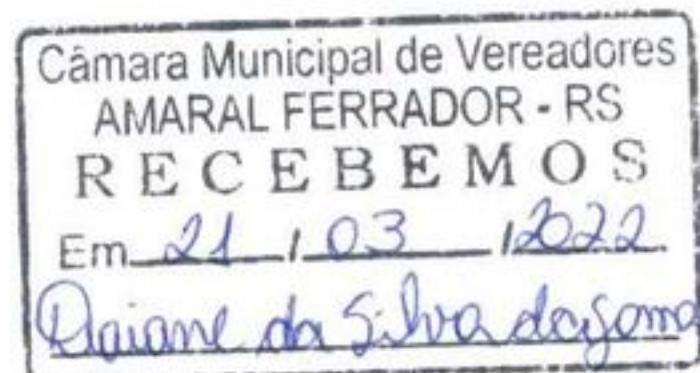 Câmara Municipal de Vereadores
AMARAL FERRADOR - RS
RECEBEMOS
Em 21 / 03 / 2022
Daiane da Silva